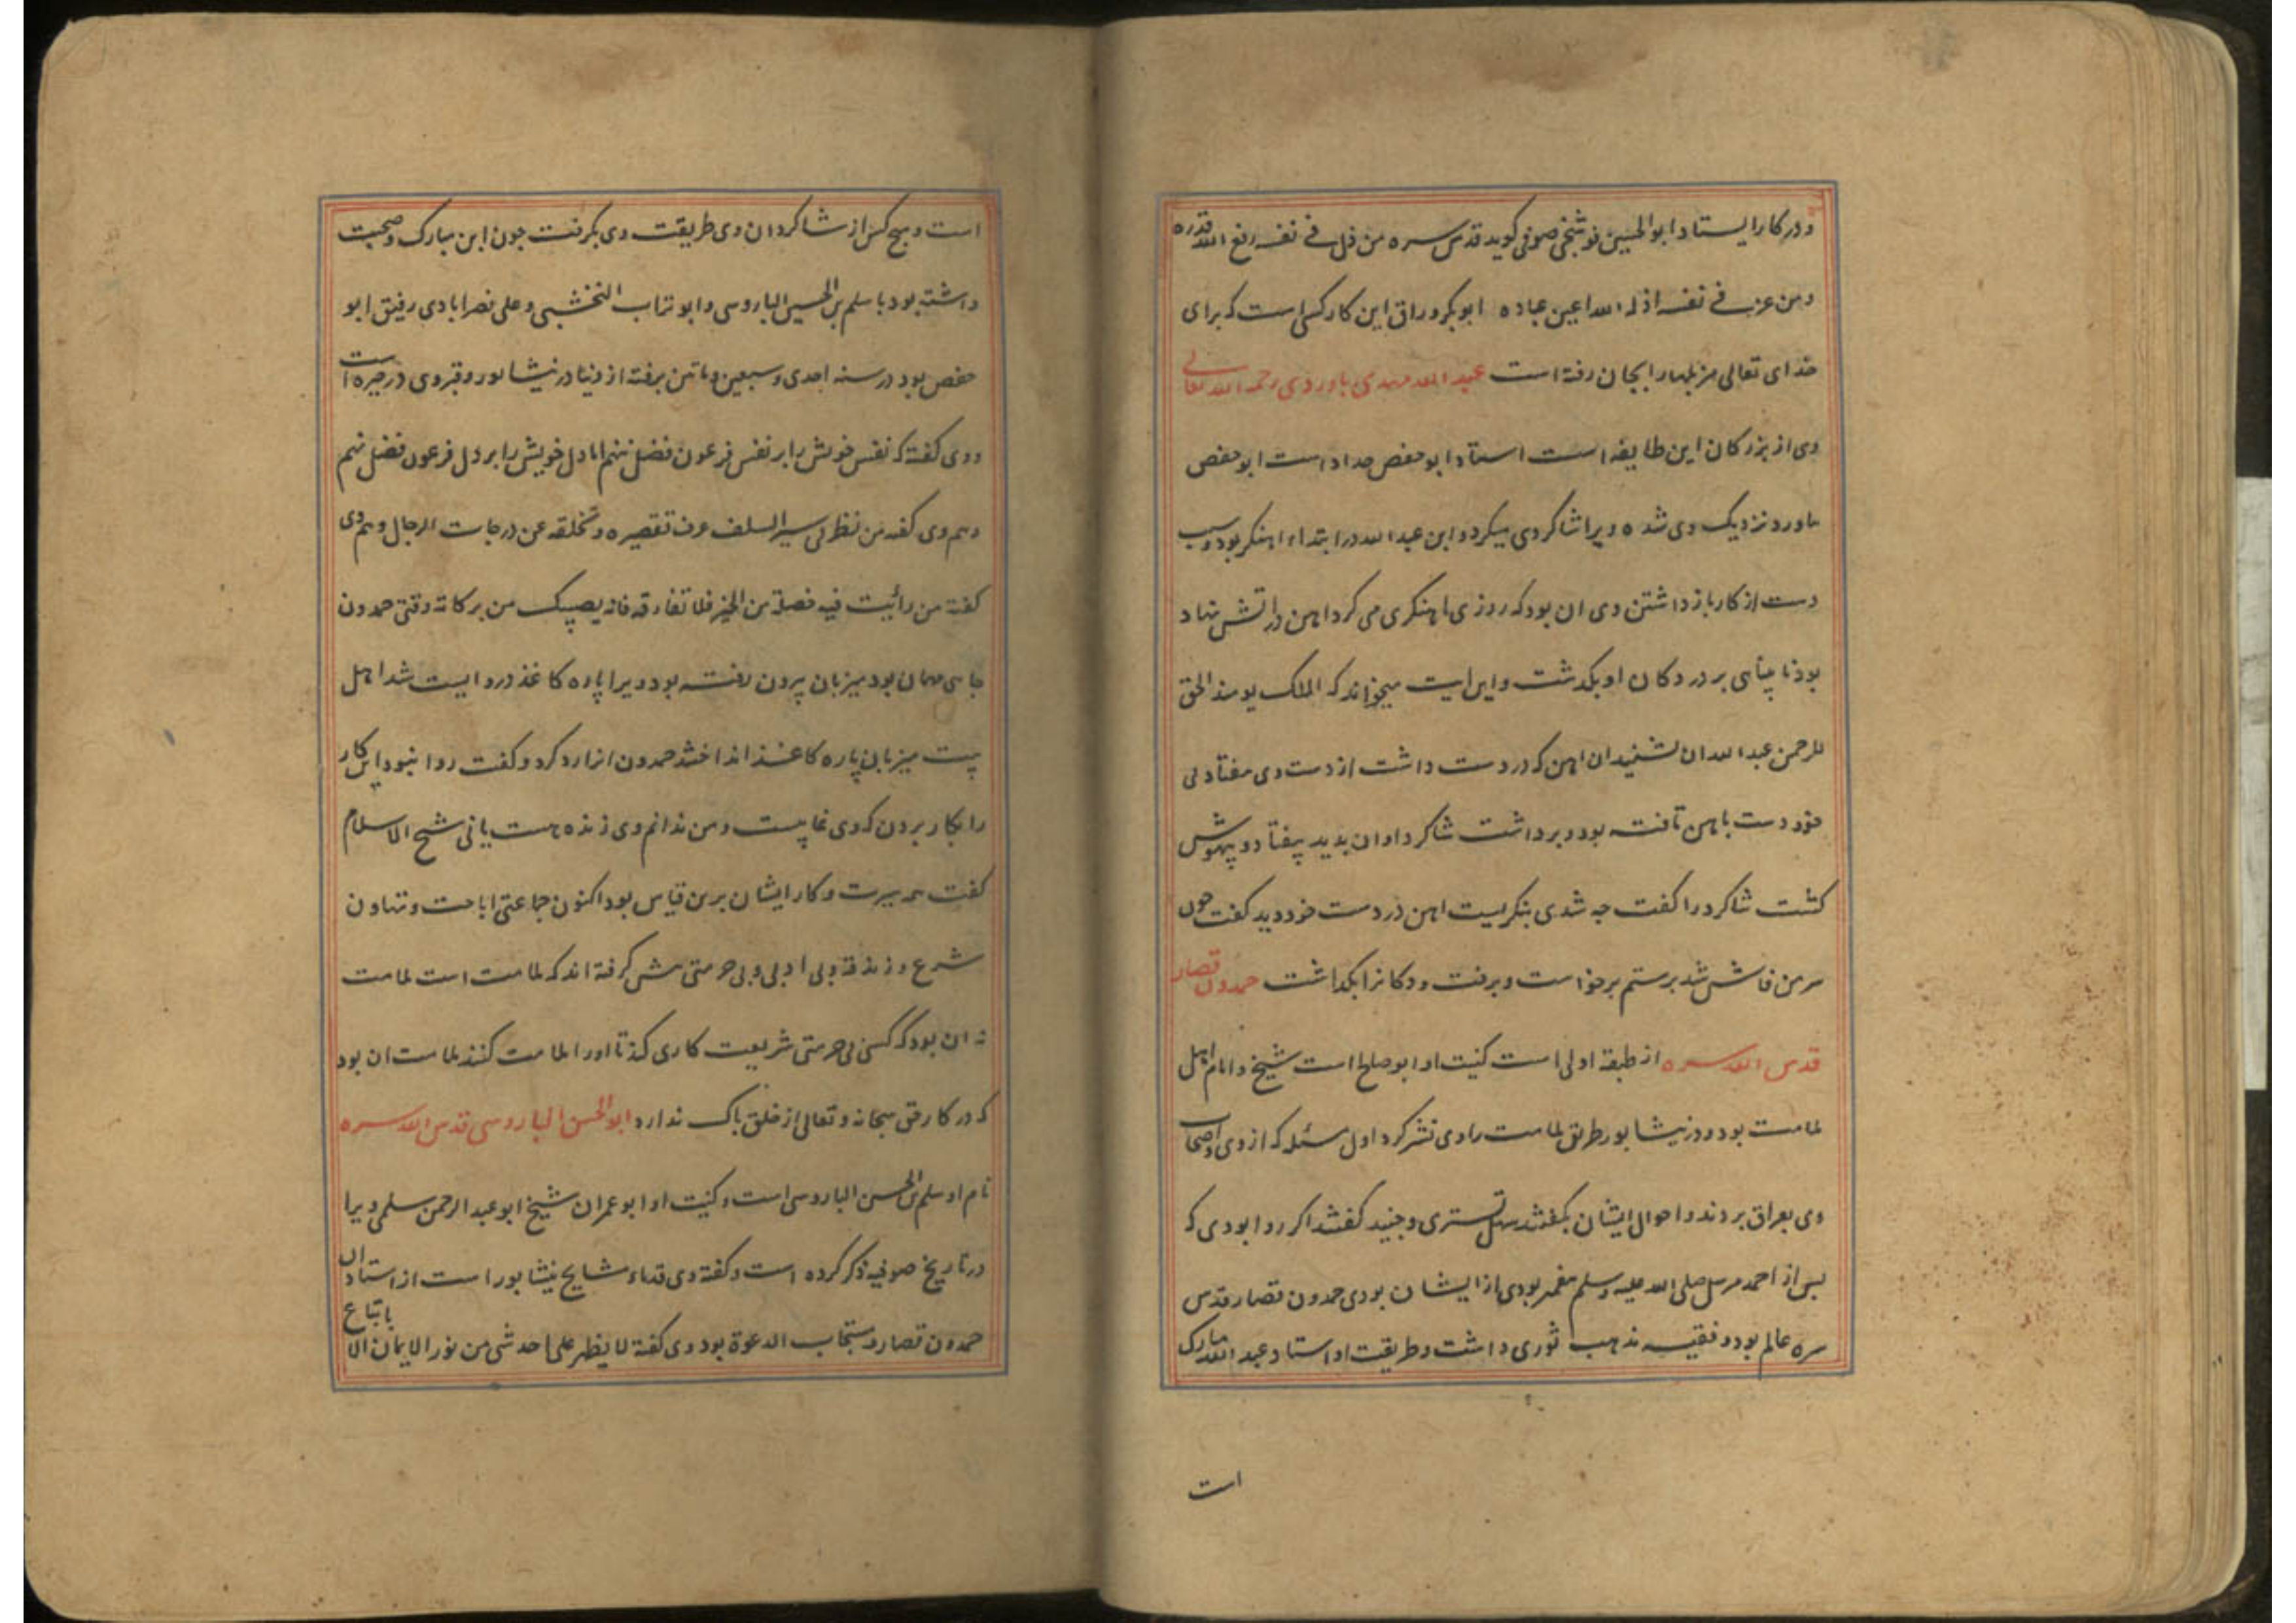 و در کار ایستاد ابوالحسین فوشنجی صوفی کوید قدس سره من ذل فی نفسه رفع الله قدره
ومن عز فی نفسه اذله الله اعین عباده ابوبکر وراق این کار کسی است که برای
خدای تعالی مزبلها را بجان رفته است عبد الله مهدی باوردی رحمه الله تعالی
وی از بزرکان این طایفه است استاد ابوحفص حداد است ابوحفص
باورد نزدیک وی شده ویرا شاکردی میکرد و این عبد الله در ابتداء اهنکر بود و سبب
دست از کار باز داشتن وی ان بود که روزی اهنکری می کرد اهن در اتش نهاد
بود نابینائی بر در دکان او بکذشت و این ایت میخواند که الملک یومئذ الحق
للرحمن عبد الله ان بشنید ان اهن که در دست داشت از دست وی بیفتاد بی
خود دست باهن تافته بود و برداشت شاکرد او ان بدید بیفتاد و بیهوش
کشت شاکرد را کفت چه شدی بنکریست اهن در دست خود دید کفت چون
سر من فاش شد برستم برخواست و برفت و دکانرا بکذاشت حمدون قصار
قدس الله سره از طبقه اولی است کنیت او ابوصلح است شیخ و امام اهل
ملامت بود و در نیشابور طریق ملامت را وی نشر کرد اول مسئله که از وی و اصحاب
وی بعراق بردند و احوال ایشان بکفتند سهل تستری و جنید کفتند اکر روا بودی که
بس از احمد مرسل صلی الله علیه وسلم پیغمبر بودی از ایشان بودی حمدون قصار قدس
سره عالم بود و فقیه مذهب ثوری داشت و طریقت او استاد عبد الله مبارک
است
است و هیچ کس از شاکردان وی طریقت وی بکرفت چون ابن مبارک و صحبت
داشته بود با سلم بن الحسین الباروسی و ابوتراب النخشبی و علی نصرابادی رفیق ابو
حفص بود در سنه احدی و سبعین و ماتین برفته از دنیا در نیشابور و قبر وی در حیره است
و وی کفته که نفس خویش را بر نفس فرعون فضل ننهم اما دل خویش را بر دل فرعون فضل نهم
و هم وی کفته من نظر فی سیر السلف عرف تقصیره و تخلفه عن درجات الرجال و هم وی
کفته من رأیت فیه خصلة من الخیر فلا تفارقه فانه یصیبک من برکاته وقتی حمدون
جائی مهمان بود میزبان بیرون رفته بود ویرا پاره کاغذ دروایست شد اهل
بیت میزبان پاره کاغذ انداختند حمدون انرا رد کرد و کفت روا نبود این کار
را بکار بردن که وی غایبست و من ندانم وی زنده هست یا نی شیخ الاسلام
کفت همه سیرت و کار ایشان برین قیاس بود اکنون جماعتی اباحت و تهاون
شرع و زندقه و بی ادبی و بی حرمتی پیش کرفته اند که ملامت است ملامت
نه ان بود که کسی بی حرمتی شریعت کاری کند تا اورا ملامت کنند ملامت ان بود
که در کار حق سبحانه و تعالی از خلق باک ندارد ابوالحسن الباروسی قدس الله سره
نام او سلم بن الحسن الباروسی است و کنیت او ابوعمران شیخ ابو عبد الرحمن سلمی ویرا
در تاریخ صوفیه ذکر کرده است و کفته وی قدماء مشایخ نیشابور است از استادان
حمدون قصار و مستجاب الدعوة بود وی کفته لا یظهر علی احد شی من نور الایمان الا
باتباع